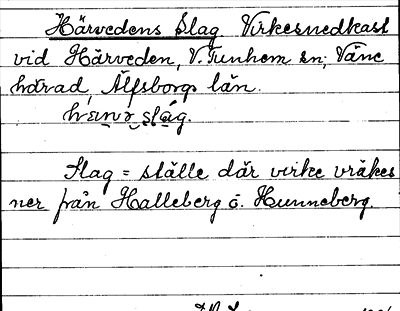 Härvedens slag Virkesnedkast
vid Härveden, V. Tunhem sn; Väne
härad, Älfsborgs län.
slåg.
Slag = ställe där virke vräkes
ner från Halleberg o. Hunneberg.